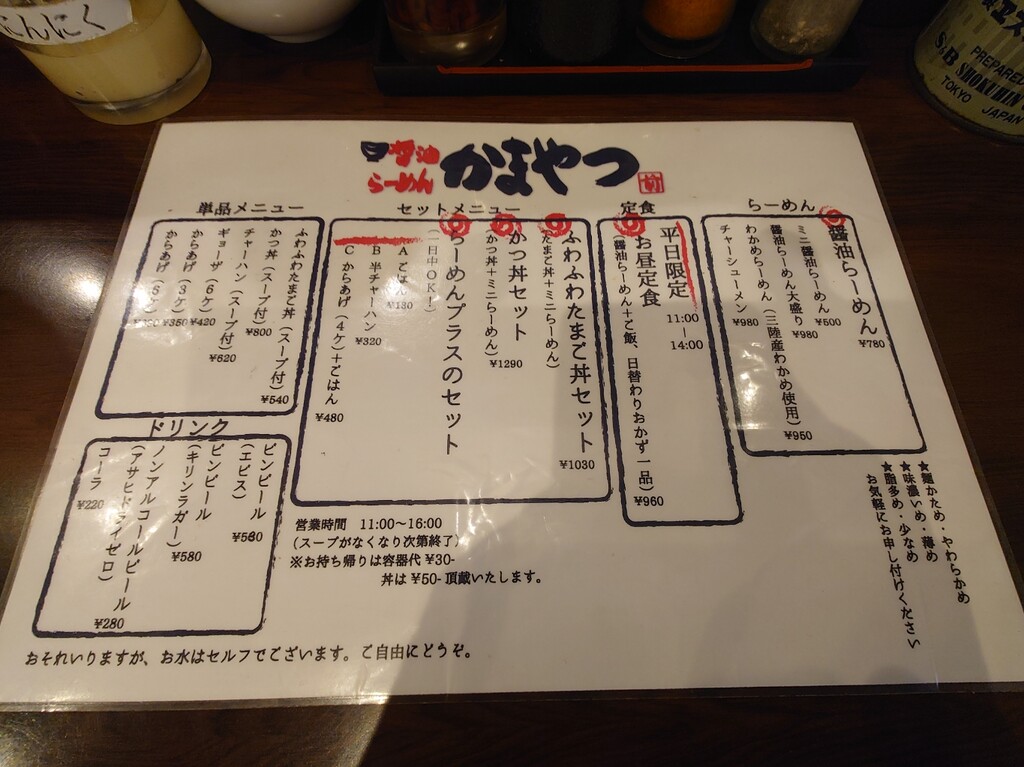 にんにく
PREPARED
S&B SHOKUHIN
TOKYO JAPAN
醤油
らーめん
かまやつ
らーめん
醤油らーめん
¥780
ミニ醤油らーめん
¥500
醤油らーめん大盛り
¥980
わかめらーめん(三陸産わかめ使用)
¥950
チャーシューメン
¥980
定食
平日限定
11:00
|
14:00
お昼定食
(醤油らーめん+ご飯、日替わりおかず一品)
¥960
セットメニュー
ふわふわたまご丼セット
¥1030
(たまご丼+ミニらーめん)
かつ丼セット
(かつ丼+ミニらーめん)
¥1290
らーめんプラスのセット
(一日中OK!)
A ごはん
¥130
B 半チャーハン
¥320
C からあげ(4ケ)+ごはん
¥480
単品メニュー
ふわふわたまご丼(スープ付)
¥540
かつ丼(スープ付)
¥800
チャーハン(スープ付)
¥620
ギョーザ(6ケ)
¥420
からあげ(3ケ)
¥350
からあげ(6ケ)
ドリンク
ビンビール
(エビス)
ビンビール
(キリンラガー)
¥580
ノンアルコールビール
(アサヒドライゼロ)
¥280
コーラ
¥220
営業時間 11:00~16:00
(スープがなくなり次第終了)
※お持ち帰りは容器代 ¥30-
丼は ¥50- 頂戴いたします。
★麺かため・やわらかめ
★味濃いめ・薄め
★脂多め・少なめ
お気軽にお申し付けください
おそれいりますが、お水はセルフでございます。ご自由にどうぞ。